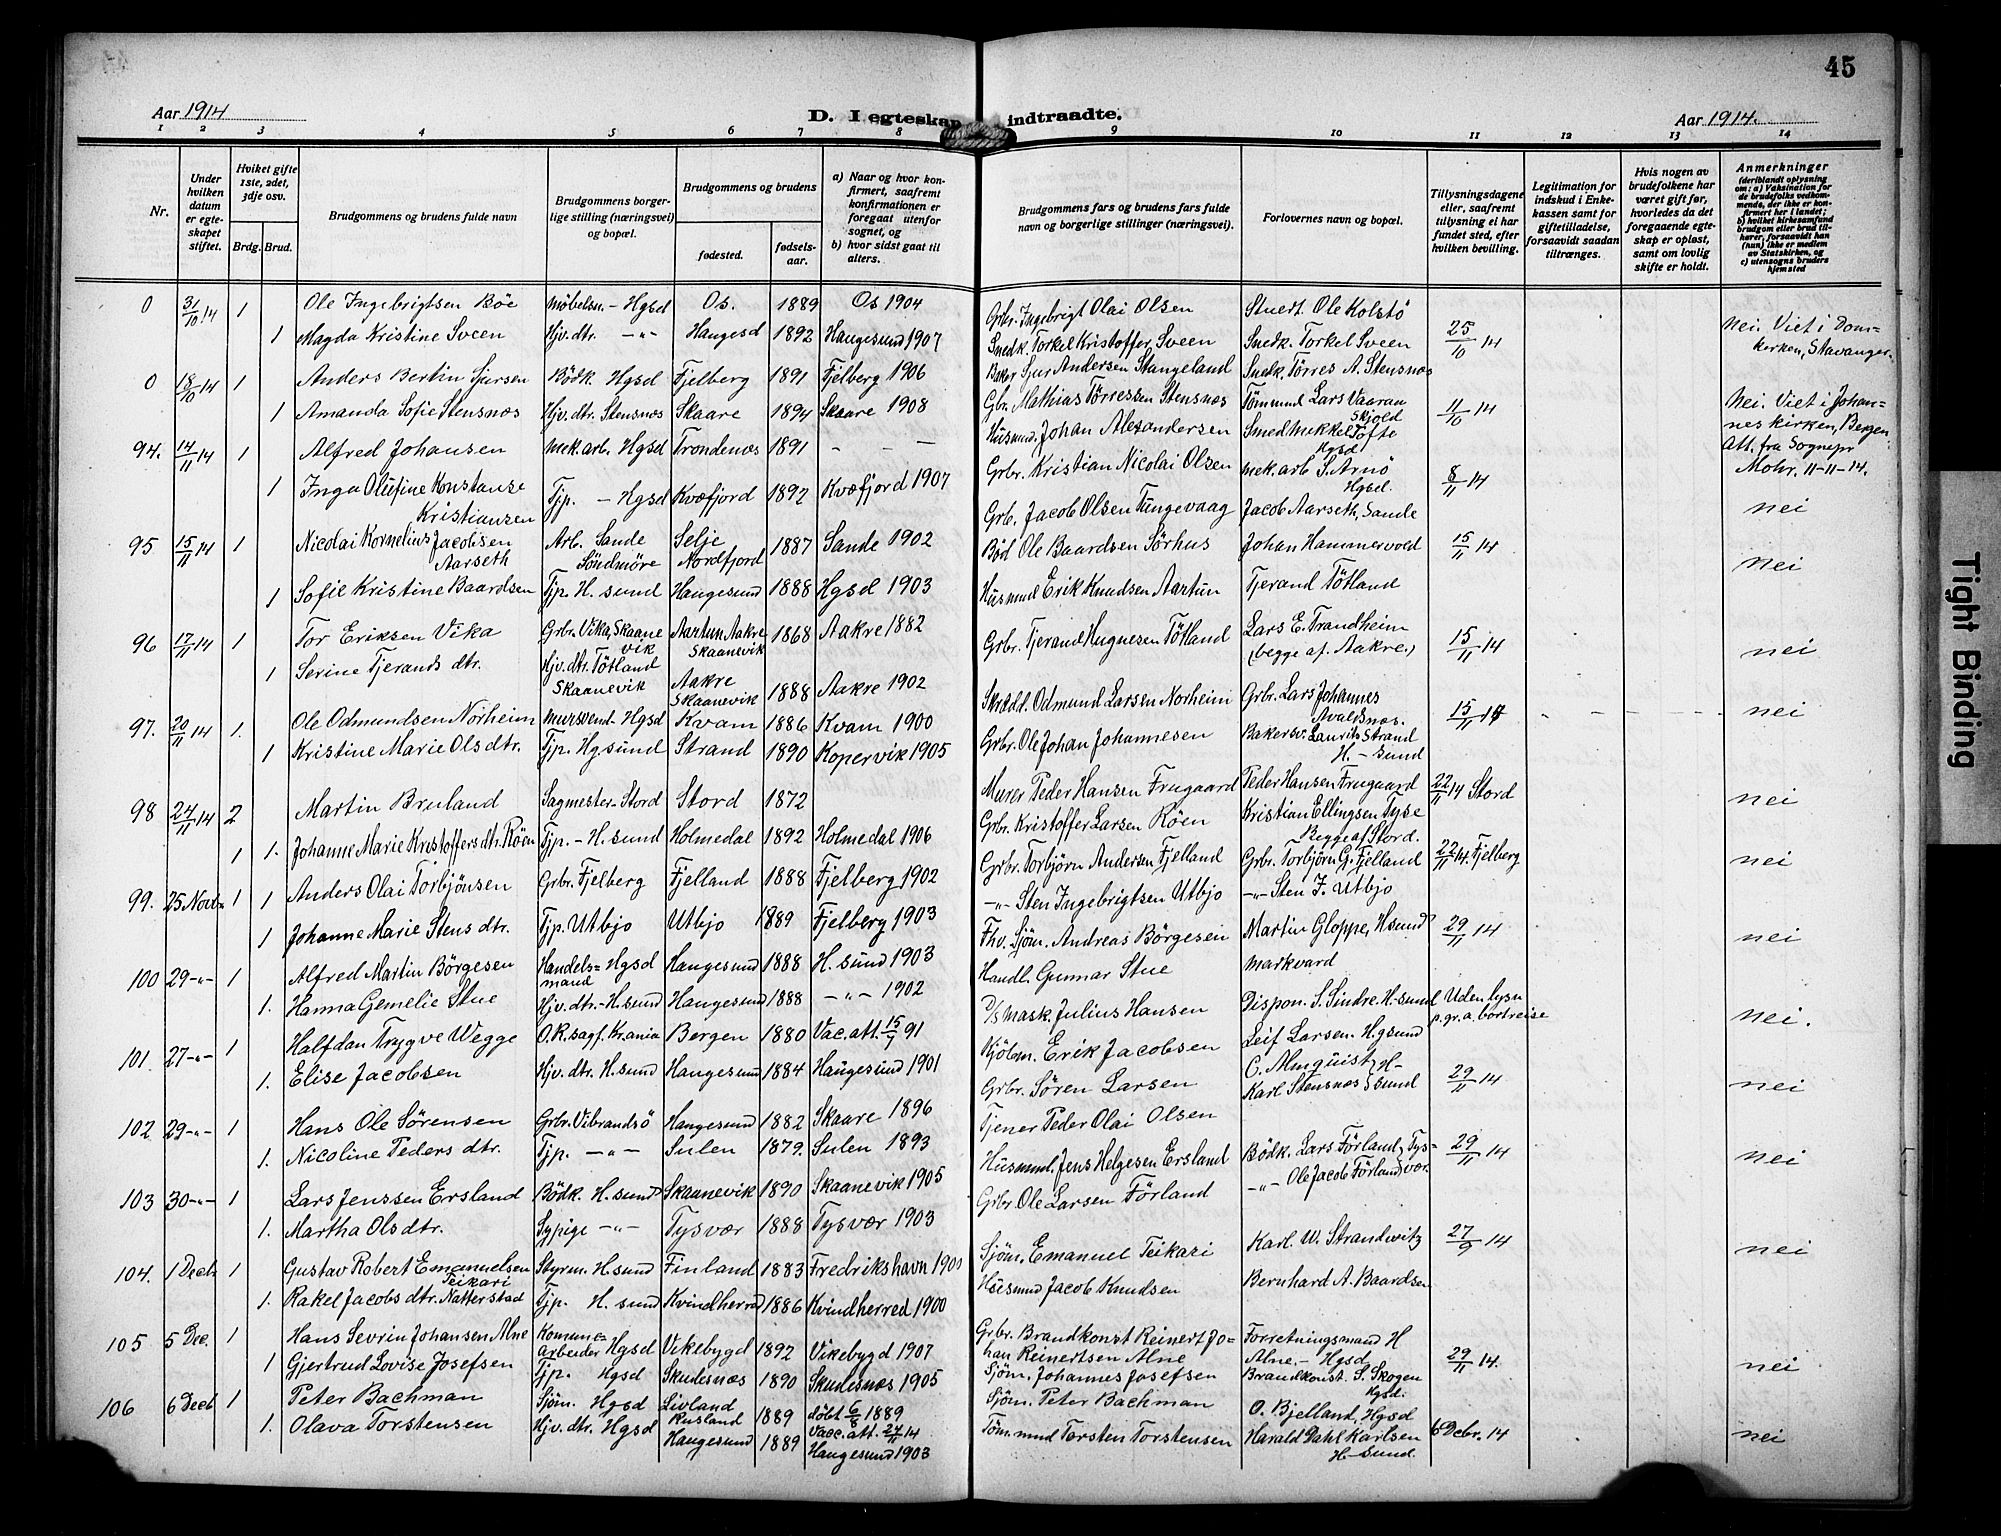 45
Aar 1914
D. I egteskap indtraadte.
Aar 1914.
1 2 3 4 5 6 7 8 9 10 11 12 13 14
Nr.
Under hvilken datum er egteskapet stiftet.
Hviket gifte 1ste, 2det, 3dje osv.
Brdg. Brud.
Brudgommens og brudens fulde navn
Brudgommens borgerlige stilling (næringsvei) og bopæl.
Brudgommens og brudens
fødested.
fødselsaar.
a) Naar og hvor konfirmert, saafremt konfirmationen er foregaat utenfor sognet, og
b) hvor sidst gaat til alters.
Brudgommens fars og brudens fars fulde navn og borgerlige stillinger (næringsvei).
Forlovernes navn og bopæl.
Tillysningsdagene eller, saafremt tillysning ei har fundet sted, efter hvilken bevilling.
Legitimation for indskud i Enkekassen samt for giftetilladelse, forsaavidt saadan tiltrænges.
Hvis nogen av brudefolkene har været gift før, hvorledes da det foregaaende egteskap er opløst, samt om lovlig skifte er holdt.
Anmerkninger
(deriblandt oplysning om: a) Vaksination for de brudefolks vedkommende, der ikke er konfirmert her i landet; b) hvilket kirkesamfund brudgom eller brud tilhører, forsaavidt han (hun) ikke er medlem av Statskirken, og c) utensogns bruders hjemsted
0 31/10 14 1 Ole Ingebrigtsen Böe Möbelsn. - Hgsd Os. 1889 Os 1904 Grbr. Ingebrigt Olai Olsen Stuert. Ole Kolstö
1 Magda Kristine Sveen Hjv. dtr. -"- Haugesd 1892 Haugesund 1907 Snedk. Torkel Kristoffer Sveen Snedk. Torkel Sveen 25/10 14 Nei. Viet i Domkerken, Stavanger.
0 18/10 14 1 Anders Bertin Sjursen Bödk. Hgsd Fjelberg 1891 Fjelberg 1906 Baker Sjur Andersen Stangeland Snedk. Törres A. Stensnæs
1 Amanda Sofie Stensnæs Hjv. dtr. Stensnæs Skaare 1894 Skaare 1908 Gbr. Mathias Törressen Stensnæs Tömmd Lars Vaaran Skjold 11/10 14 Nei. Viet i Johanneskirken, Bergen
94. 14/11 14 1 Alfred Johansen Mek. arb. Hgsd Trondenæs 1891 - - Husmd. Johan Alexandersen Smed Mekkel Tofte Hgsd Att. fra Sognepr Mohr, 11-11-14.
1 Inga Olufine Konstanse Kristiansen Tjp. - Hgsd Kvæfjord 1892 Kvæfjord 1907 Grbr. Kristian Nicolai Olsen Mek. arb S. Arnö Hgsd. 8/11 14 nei
95 15/11 14 1 Nicolai Kornelius Jacobsen Aarseth Arb. Sande Söndmöre Selje Nordfjord 1887 Sande 1902 Grb. Jacob Olsen Tungevaag Jacob Aarseth, Sande
1 Sofie Kristine Baardsen Tjp. H. sund Haugesund 1888 Hgsd 1903 Börl Ole Baardsen Sörhus Johan Hammervold 15/11 14 nei
96 17/11 14 1 Tor Eriksen Vika Grbr. Vika, Skaanevik Aartun Aakre Skaanevik 1868 Aakre 1882 Husmd Erik Knudsen Aartun Tjerand Tötland
1 Serine Tjerands dtr. Hjv. dtr. Tötland Skaanevik Aakre Skaanevik 1888 Aakre 1902 Grbr. Tjerand Hugnesen Tötland Lars E. Trandheim (begge af Aakre.) 15/11 14 nei
97. 20/11 14 1. Ole Odmundsen Norheim Mursvend. Hgsd Kvam 1886 Kvam 1900 Skrædd. Odmund Larsen Norheim Grbr. Lars Johannes Avaldsnæs.
1 Kristine Marie Olsdtr. Tjp. Hgsund Strand 1890 Kopervik 1905 Grbr. Ole Johan Johannesen Bakersv. Laurits Strand H. - sund 15/11 14 nei
98 24/11 14 2 Martin Bruland Sagmester. Stord Stord 1872 Murer Peder Hansen Frugaard Peder Hansen Frugaard 22/11 14 Stord
1 1. Johanne Marie Kristoffers dtr. Röen Tjp. - H. sund Holmedal 1892 Holmedal 1906 Grbr. Kristoffer Larsen Röen Kristian Ellingsen Tyse Begge af Stord. nei
99. 25 Novbr 1 1 Anders Olai Torbjönsen Grbr. Fjelberg Fjelland 1888 Fjelberg 1902 Grbr. Torbjörn Andersen Fjelland Grbr. Torbjörn G. Fjelland 22/11 14. Fjelberg
1 Johanne Marie Stens dtr. Tjp. Utbjo Utbjo 1889 Fjelberg 1903 -"- Sten Ingebrigtsen Utbjo -"- Sten J. Utbjo nei
100 29 -"- 1 Alfred Martin Börgesen Handelsmand Hgsd Haugesund 1888 H. sund 1903 Fhv. Sjöm. Andreas Börgesen Martin Gloppe, Hsund 29/11 14
1. Hanna Gemelie Stue Hjv. dtr. - H. sund Haugesund 1888 -"- 1902 Handl. Gunnar Stue Markvard nei
101. 27 -"- 1 Halfdan Trygve Wegge O.R.sagf. Kr.ania Bergen 1880 Vac. att. 15/9 91 D/s Mask. Julius Hansen Dispon. S. Sindre. H-sund Uden lysn p. gr. a. bortreise
1. Elise Jacobsen Hjv. dtr. H. sund Haugesund 1884 Haugesund 1901 Kjöbm. Erik Jacobsen Leif Larsen. Hgsund nei.
102 29 -"- 1 Hans Ole Sörensen Grbr. Vibrandsö Haugesund 1882 Skaare 1896 Grbr. Sören Larsen C. Almquist
1. Nicoline Peders dtr. Tjp. -"- Sulen 1879. Sulen 1893 Tjener Peder Olai Olsen Karl Stensnæs H-sund 29/11 14 nei
103 30 -"- 1 Lars Jenssen Ersland Bödk. H. sund Skaanevik 1890 Skaanevik 1905 Husmd. Jens Helgesen Ersland Bödk. Lars Förland, Tysvær. 29/11 14
1. Martha Olsdtr. Sypige -"- Tysvær 1888 Tysvær 1903 Grbr. Ole Larsen Förland -"- Ole Jacob Förland nei
104. 1 Decbr 1 Gustav Robert Emanuelsen Teikari Styrm. H. sund Finland 1883 Fredrikshavn 1900 Sjöm. Emanuel Teikari Karl. W. Strandwitz 27/9 14
1. Rakel Jacobs dtr. Natterstad Tjp. H. sund Kvindherred 1886 Kvindherred 1900 Husmd Jacob Knudsen Bernhard A. Baardsen nei
105 5 Dec. 1 Hans Sevrin Johansen Alne Komunearbeider Hgsd Vikebygd 1892 Vikebygd 1907 Grbr. Brandkonst Reinert Johan Reinertsen Alne Forretningsmand H Alne. - Hgsd
1 Gjertrud Lovise Josefsen Tjp. Hgsd Skudesnæs 1890 Skudesnæs 1905 Sjöm. Johannes Josefsen Brandkonst. S. Skogen Hgsd. 29/11 14. nei
106 6 Decb 1 Peter Bachman Sjöm. Hgsd Livland Rusland 1889 döbt 6/8 1889 Vacc. att. 24/11 14 Sjöm. Peter Bachman O. Bjelland, Hgsd
1. Olava Torstensen Hjv. dtr. Hgsd Haugesund 1889 Haugesund 1903 Töm. md Torsten Torstensen Harald Dahl Karlsen H-sund. 6 Debr. 14 nei
Tight Binding